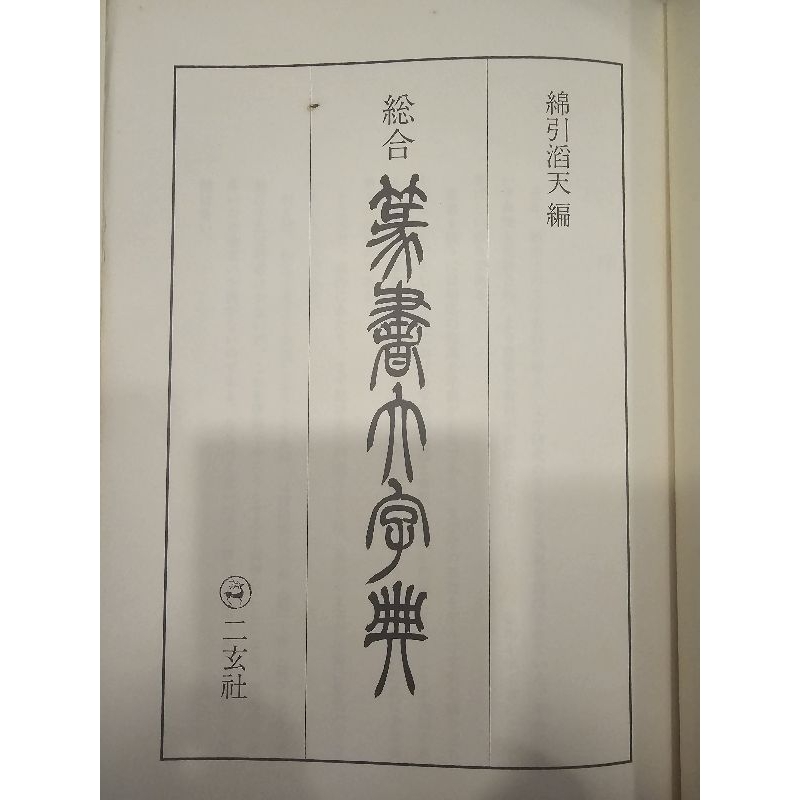 綿引滔天 編
総合 篆書大字典
二玄社